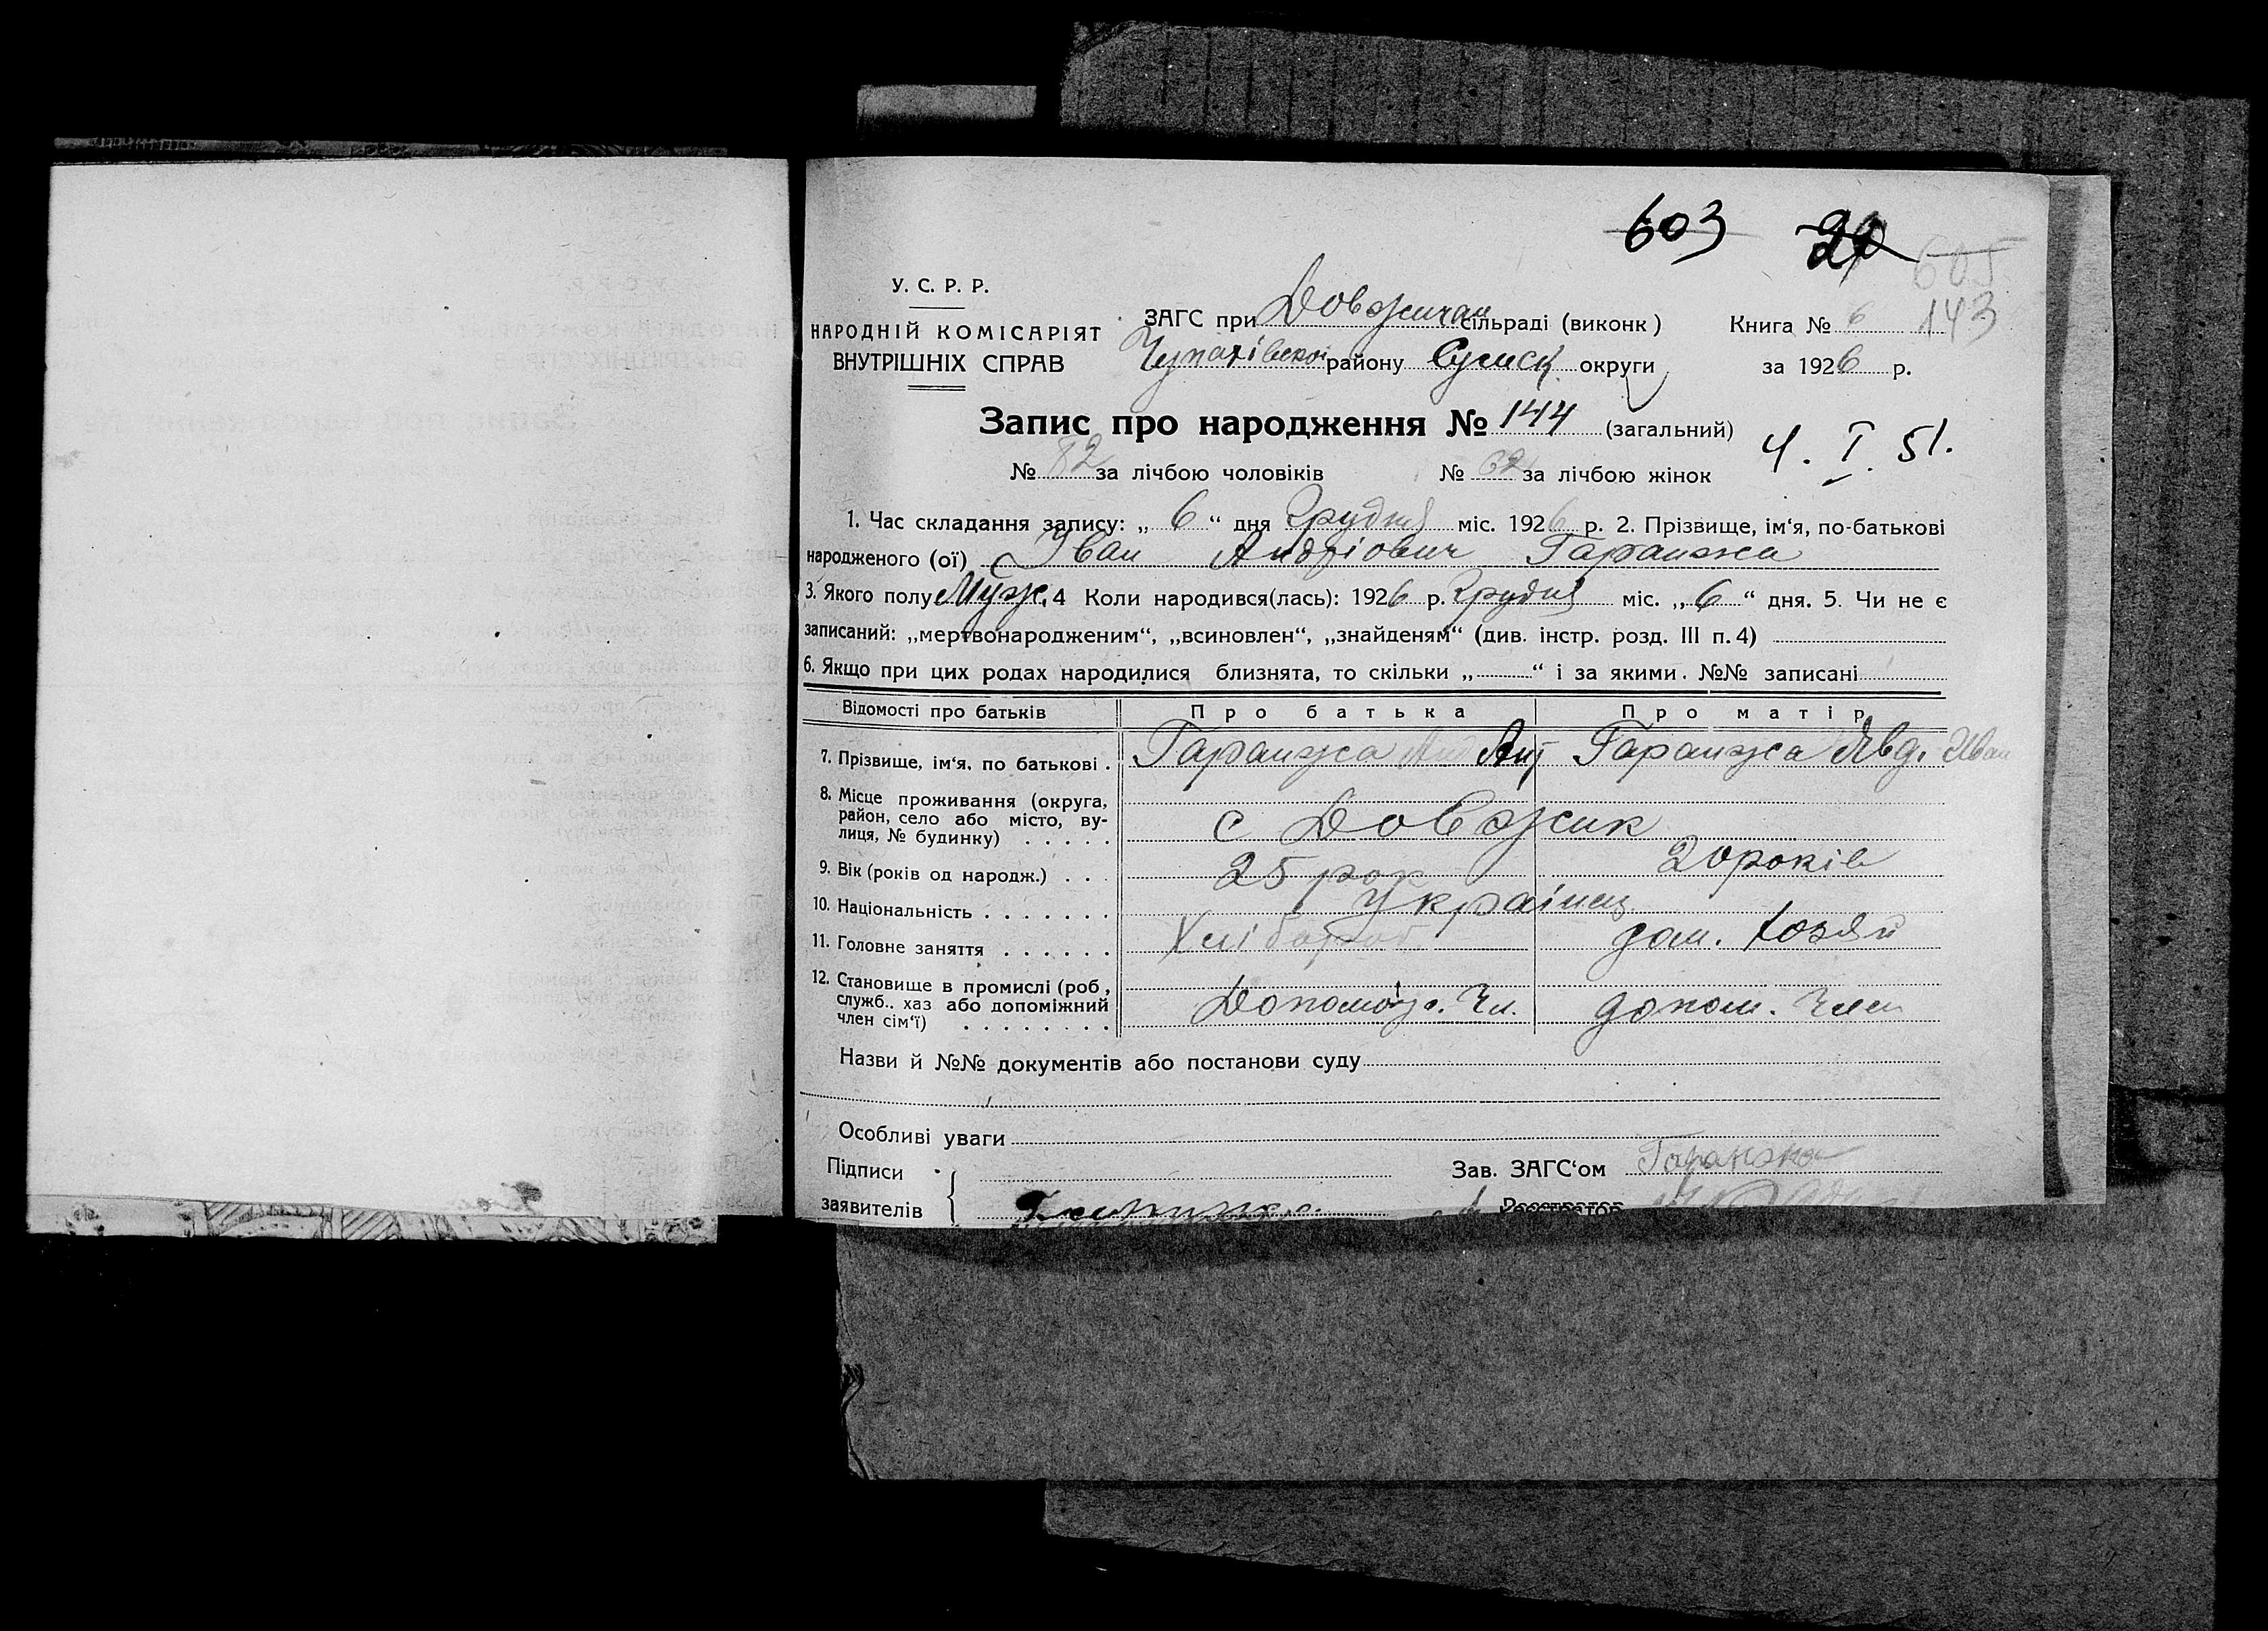 603 29 605
У. С. Р. Р.
НАРОДНІЙ КОМІСАРІЯТ
ВНУТРІШНІХ СПРАВ
ЗАГС при Довжичан сільраді (виконк) Книга № 6 143
Чупахівської району Сумск округи за 1926 р.
Запис про народження № 144 (загальний)
4. I. 51.
№ 82 за лічбою чоловіків № 62 за лічбою жінок
1. Час складання запису: „ 6 “ дня Грудня міс. 1926 р. 2. Прізвище, ім‘я, по-батькові
народженого (ої) Іван Андріович Гаранжа
3. Якого полу Муж. 4 Коли народився(лась): 1926 р. Грудня міс. „ 6 “ дня. 5. Чи не є
записаний: „мертвонародженим“, „всиновлен“, „знайденям“ (див. інстр. розд. III п. 4)
6. Якщо при цих родах народилися близнята, то скільки „ “ і за якими. №№ записані
Відомості про батьків Про батька Про матір
7. Прізвище, ім‘я, по батькові . Гаранжа Гаранжа Явд. Иван
8. Місце проживання (округа,
район, село або місто, ву-
лиця, № будинку) . . . . . с Довжик
9. Вік (років од народж.) . . . 25 рок 20 років
10. Національність . . . . . . . Українц
11. Головне заняття . . . . . . Хлібороб дом. хозяй
12. Становище в промислі (роб,
служб.. хаз або допоміжний
член сім‘ї) . . . . . . . . Допоміж. Чл. допом. Член
Назви й №№ документів або постанови суду
Особливі уваги
Підписи Зав. ЗАГС‘ом Гаранжа
заявителів Реєстратор